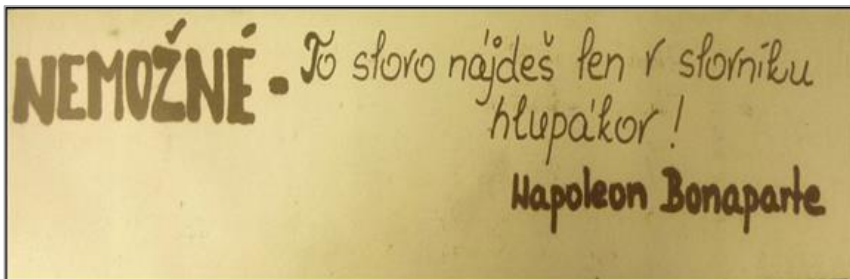 NEMOŽNÉ - To slovo nájdeš len v slovníku
hlupákov!
Napoleon Bonaparte